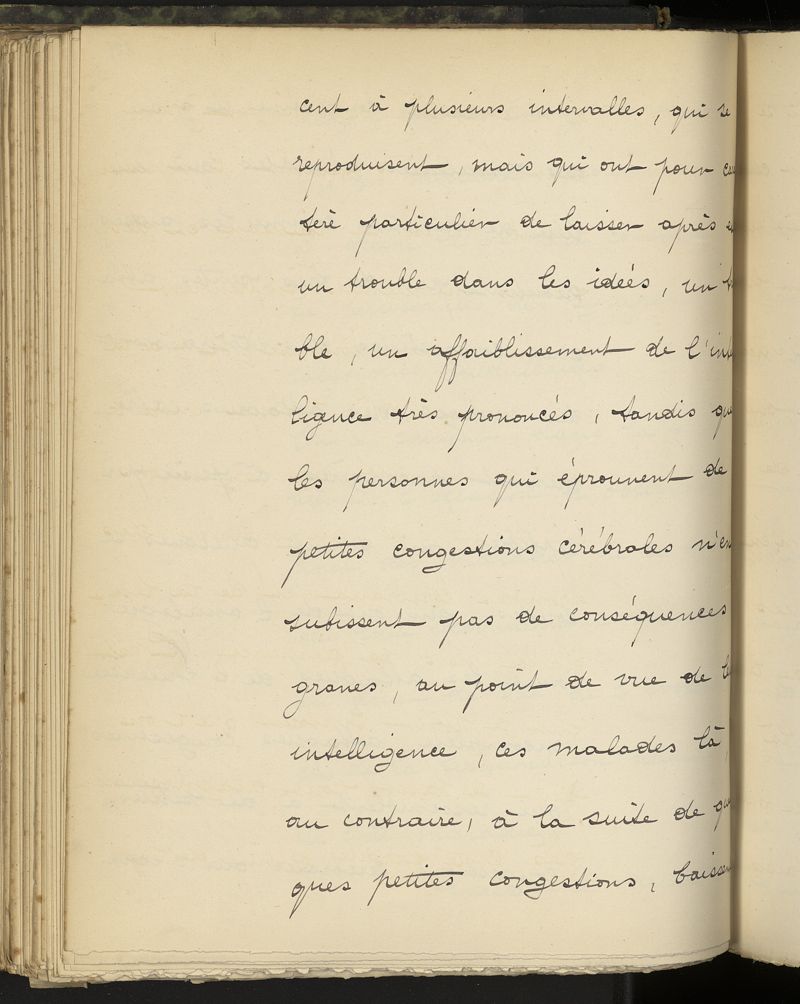 cent à plusieurs intervalles, qui se
reproduisent, mais qui ont pour
tère particulier de laisser après
un trouble dans les idées, un
ble, un affaiblissement de l'int
ligence très prononcés, tandis
les personnes qui éprouvent de
petites congestions cérébrales n'en
subissent pas de conséquences
graves, au point de vue de
intelligence, ces malades là,
au contraire, à la suite de
ques petites congestions, baissen